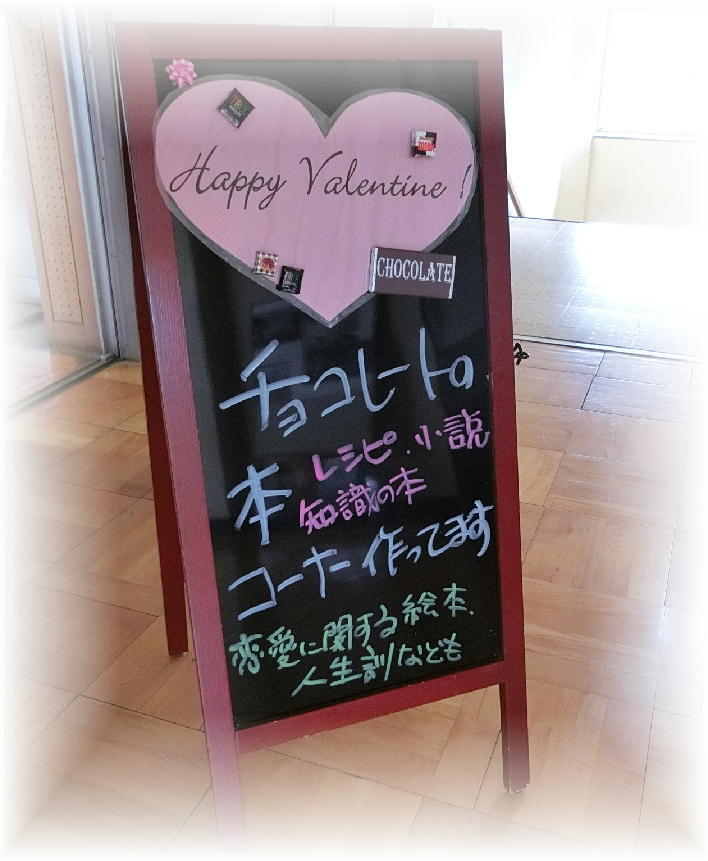 Happy Valentine!
CHOCOLATE
チョコレートの
本 レシピ・小説
知識の本
コーナー作ってます
恋愛に関する絵本、
人生訓なども